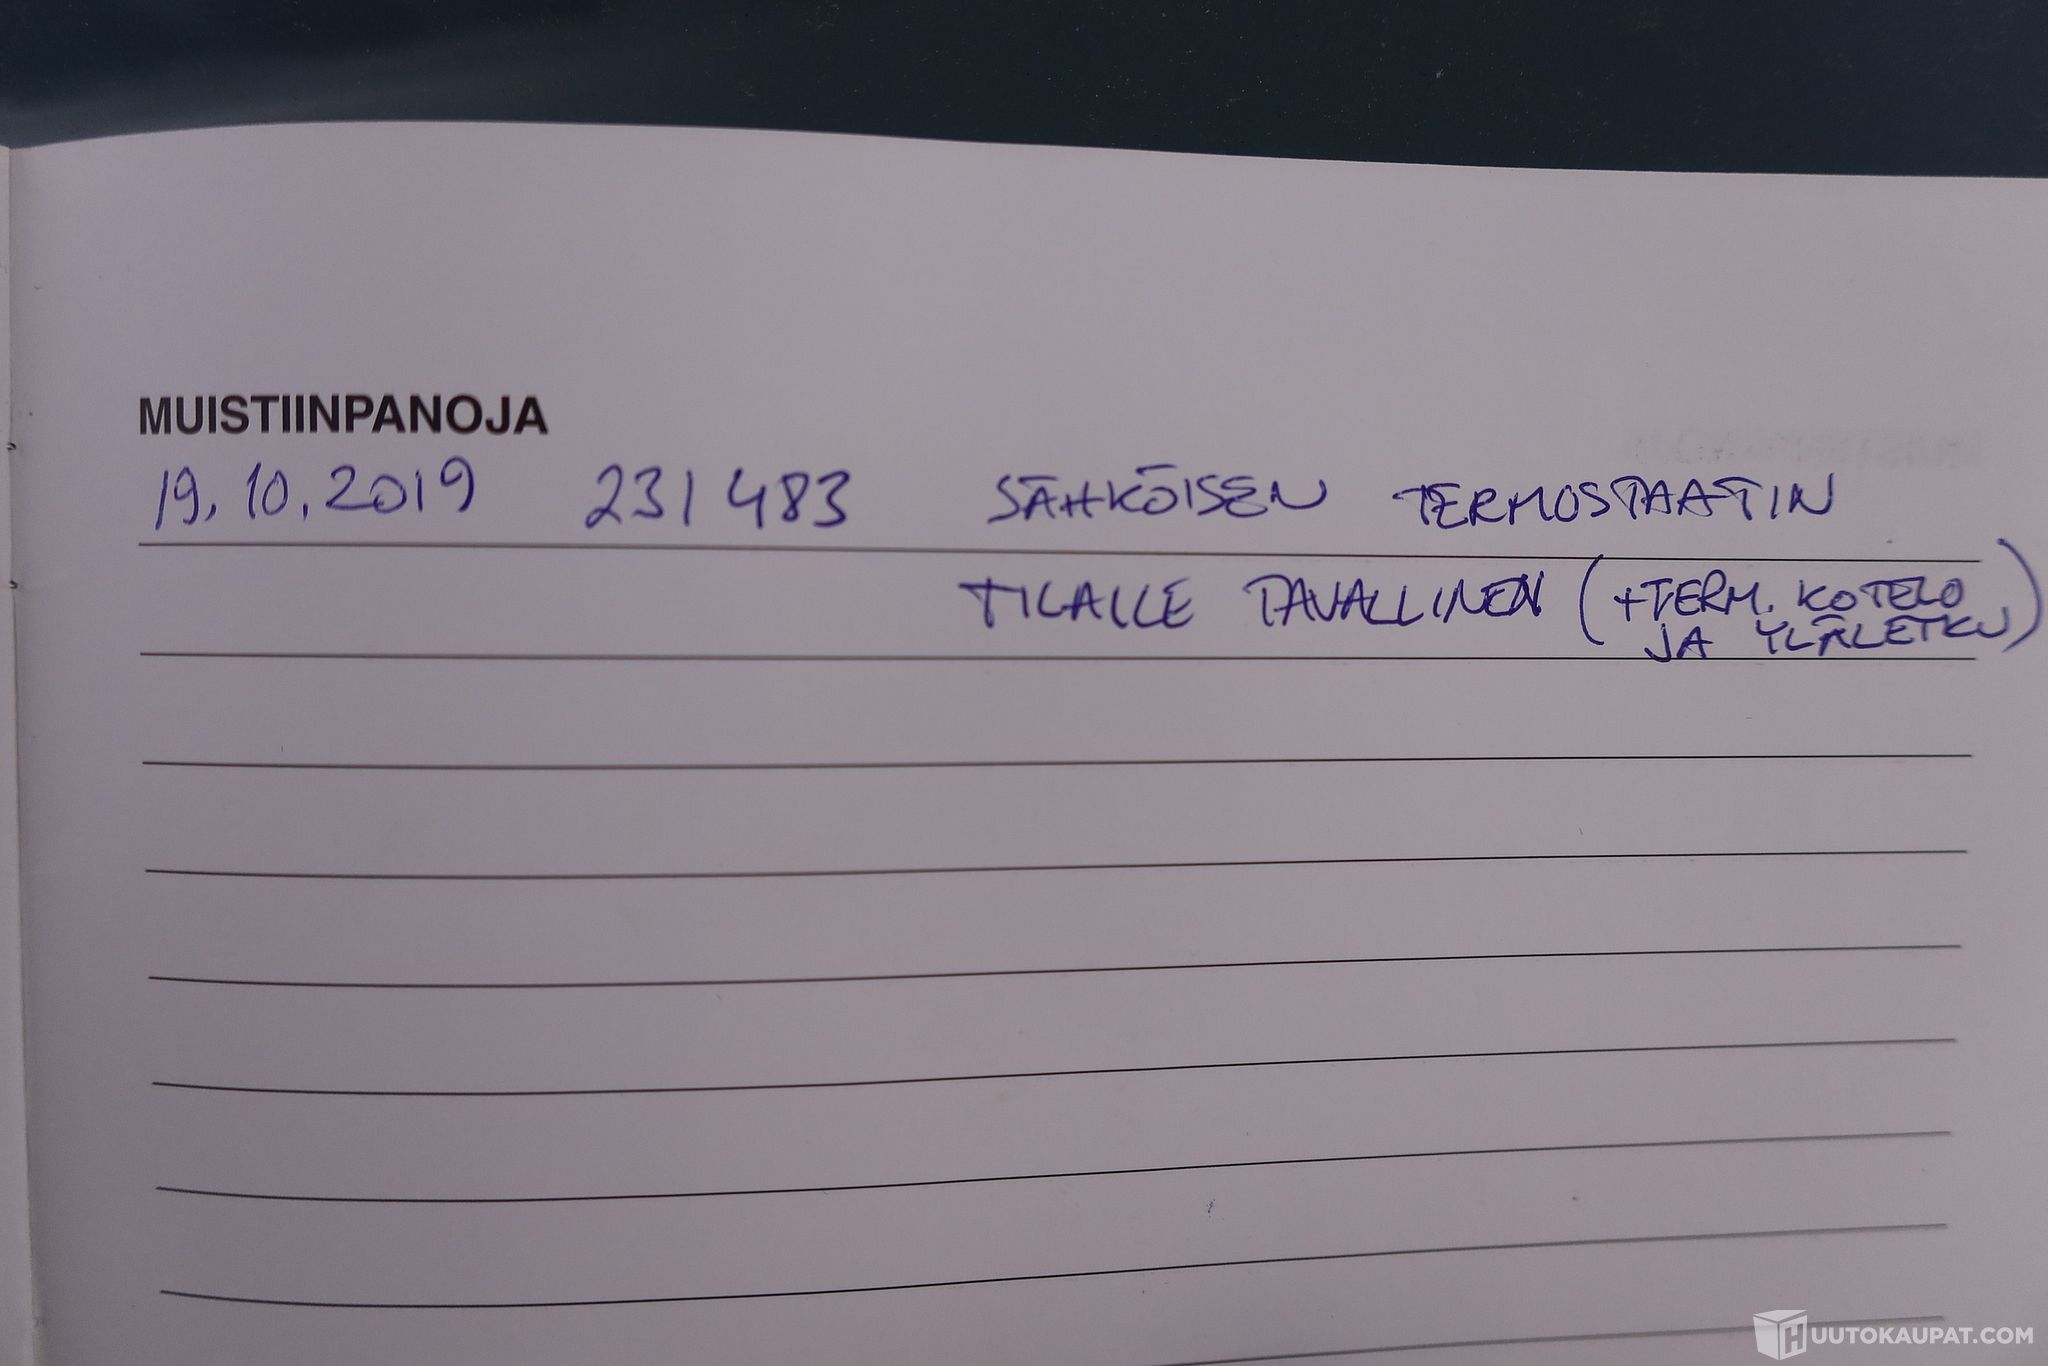 MUISTIINPANOJA
19.10.2019 231 483 SÄHKÖISEN TERMOSTAATIN
TILALLE TAVALLINEN (+TERM. KOTELO
JA YLÄLETKU)
HUUTOKAUPAT.COM